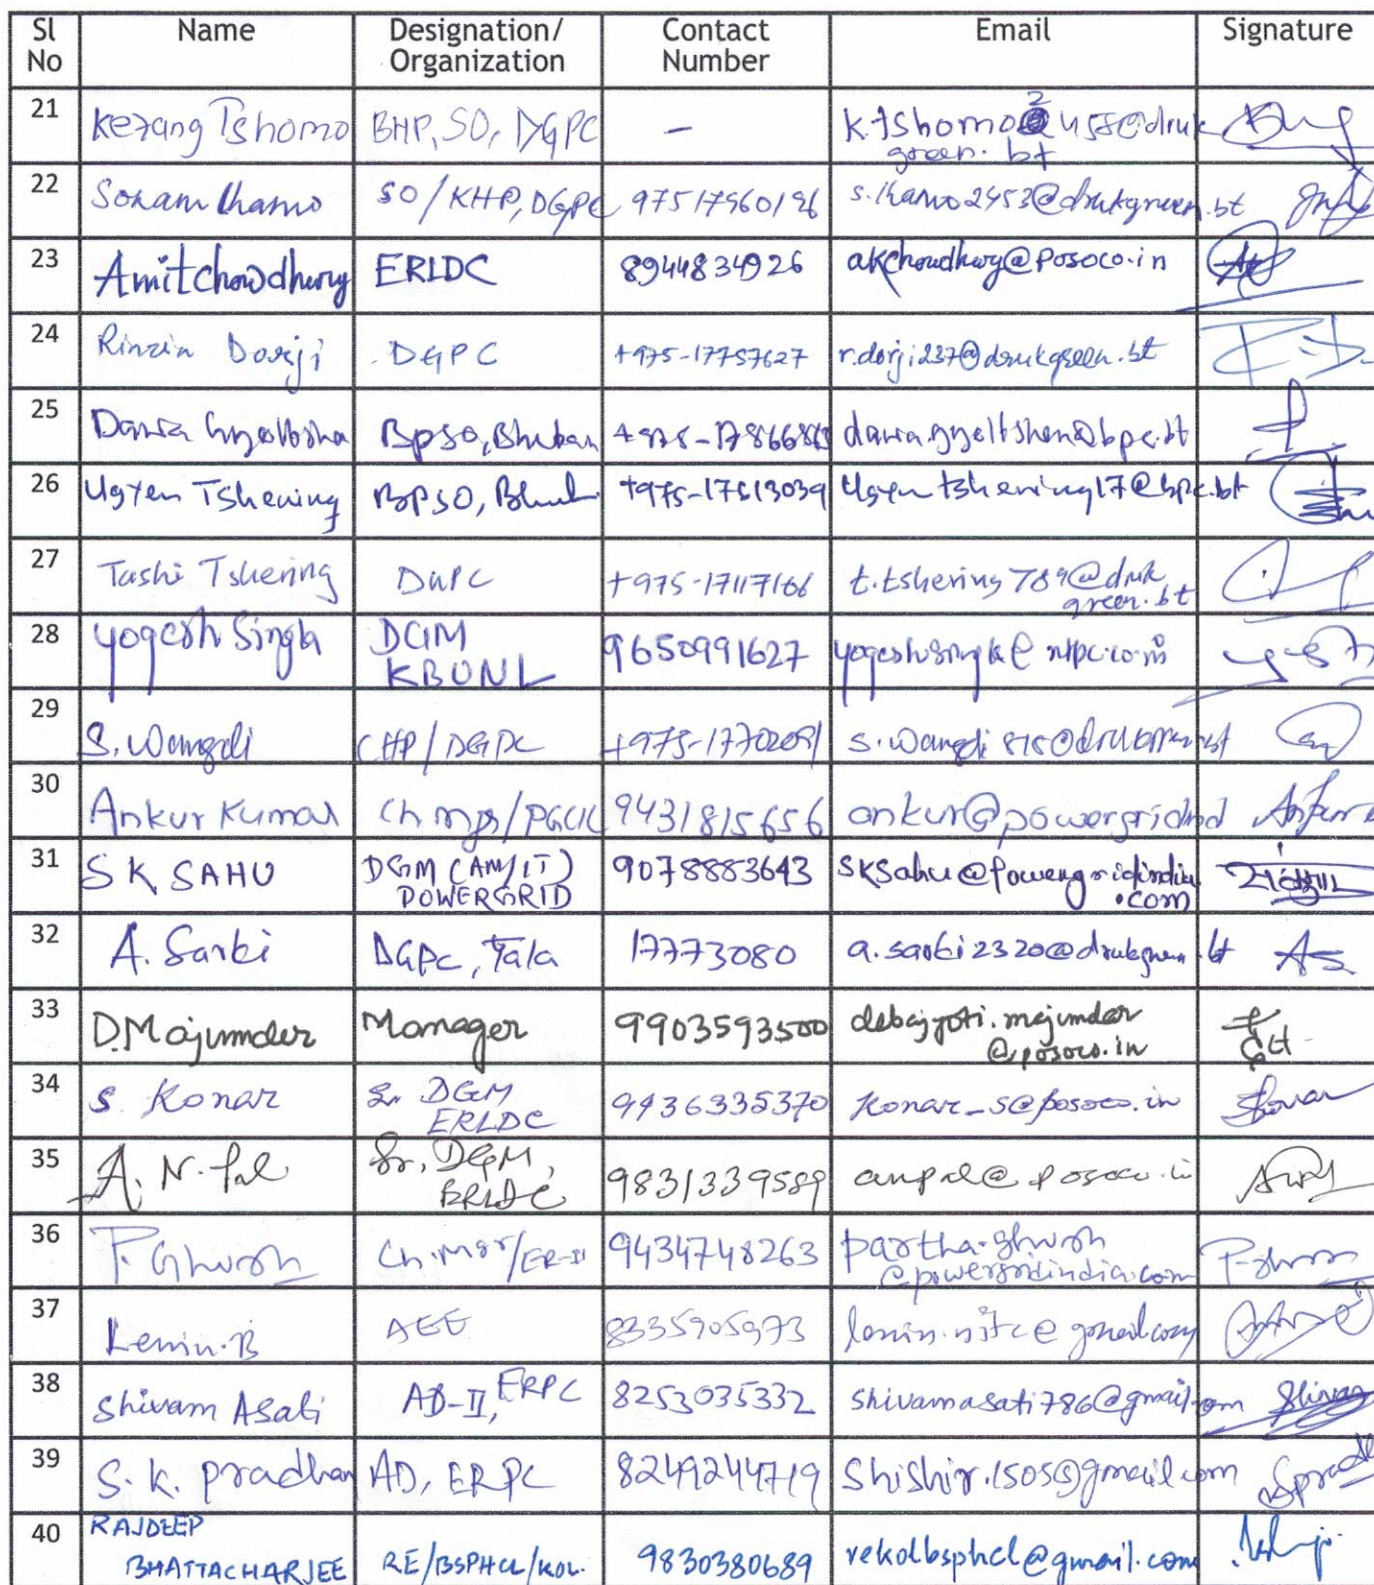 Sl No Name Designation/ Organization Contact Number Email Signature
21 Kezang Tshomo BHP, SO, DGPC – k.tshomo2458@druk
green.bt
22 Sonam Lhamo SO/KHP, DGPC 97517960196 s.lhamo2453@drukgreen.bt
23 Amit chowdhury ERLDC 8944834926 akchoudhury@posoco.in
24 Rinzin Dorji DGPC +975-17757627 r.dorji237@drukgreen.bt
25 Dawa BPSO, Bhutan dawa.gyeltshen@bpc.bt
26 Ugyen Tshering BPSO, +975-17613039 Ugyentshering17@bpc.bt
27 Tashi Tshering DGPC +975-17117166 t.tshering789@druk
green.bt
28 Yogesh Singla DGM
KBUNL 9650991627
29 S. Wangdi CHP/DGPC
30 Ankur Kumar Ch mgr/PGCIL 9431815656
31 SK SAHU DGM (AM/IT)
POWERGRID 9078883643 sksahu@powergridindia
.com
32 A. Sarki DGPC, Tala 17773080 a.sarki2320@drukgreen.bt AS
33 D. Majumder Manager 9903593500 debajyoti.majumder
@posoco.in
34 S. Konar Sr DGM
ERLDC 9436335370 konar_s@posoco.in
35 A. N. Pal Sr. DGM,
ERLDC 9831339589 anpal@posoco.in
36 P. Ghosh Ch.Mgr/ER-II 9434748263 partha.ghosh
@powergridindia.com
37 Lenin.B AEE 8335905973 lenin.nitc@gmail.com
38 Shivam Asati AD-II, ERPC 8253035332 shivamasati786@gmail.com
39 S. K. Pradhan AD, ERPC 8249244719 Shishir.1505@gmail.com
40 RAJDEEP
BHATTACHARJEE RE/BSPHCL/KOL. 9830380689 rekolbsphcl@gmail.com